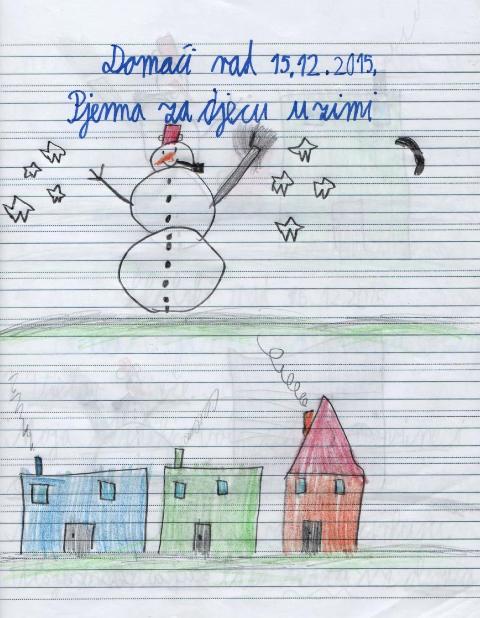 Domaći rad 15.12.2015.
Pjesma za djecu u zimi